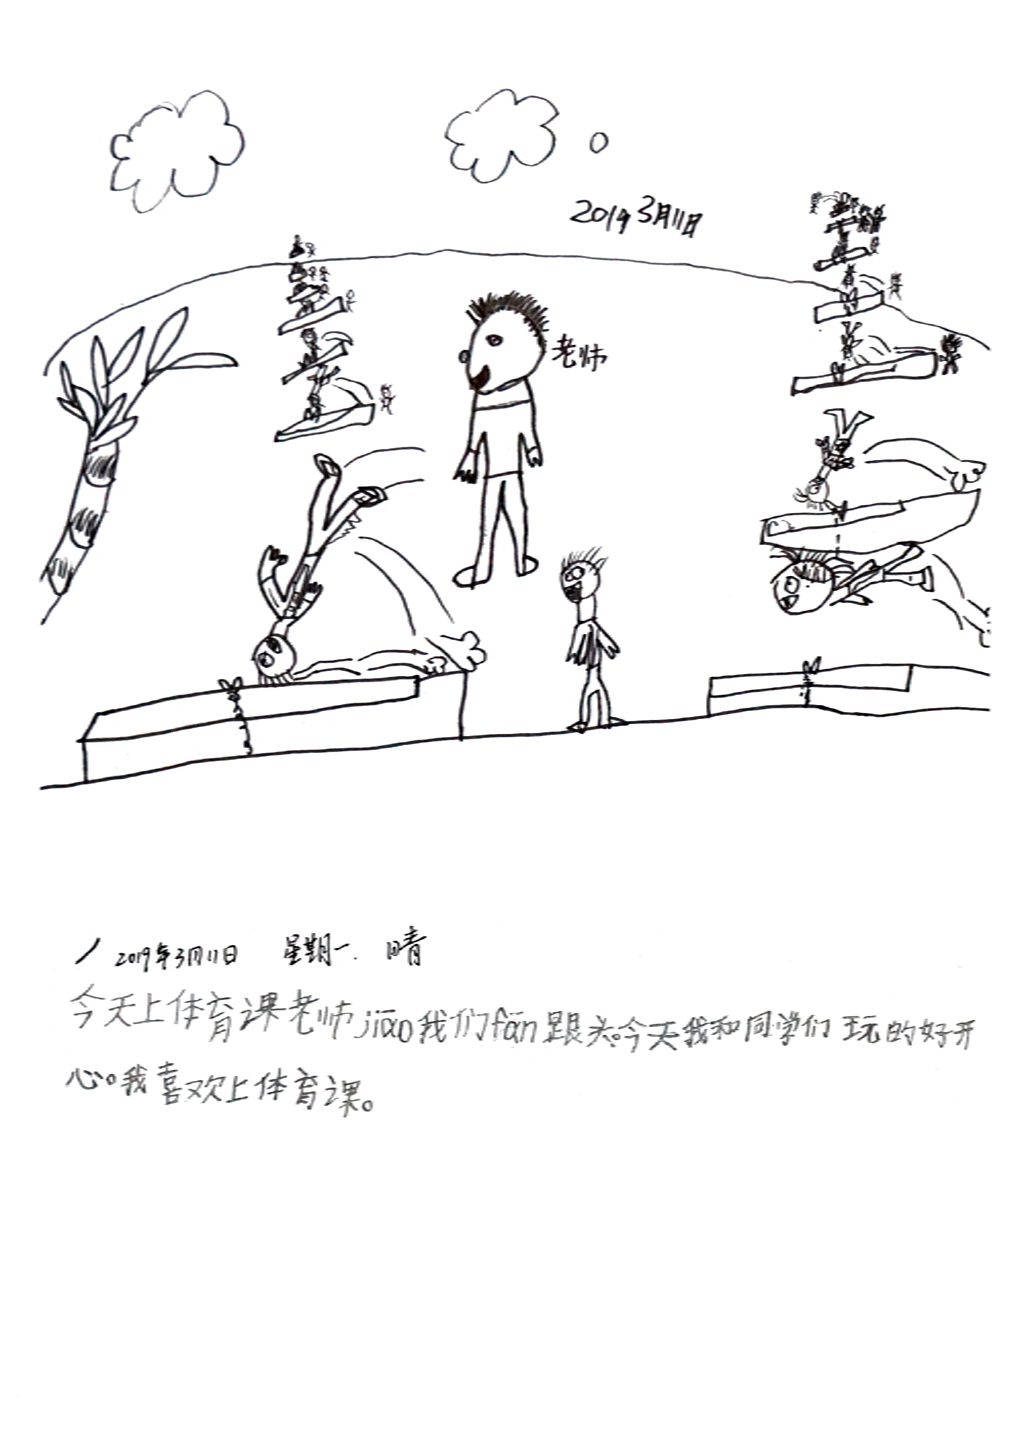 2019 3月11日
老师
2019年3月11日 星期一. 晴
今天上体育课老师jiāo我们fān跟头。今天我和同学们玩的好开
心。我喜欢上体育课。